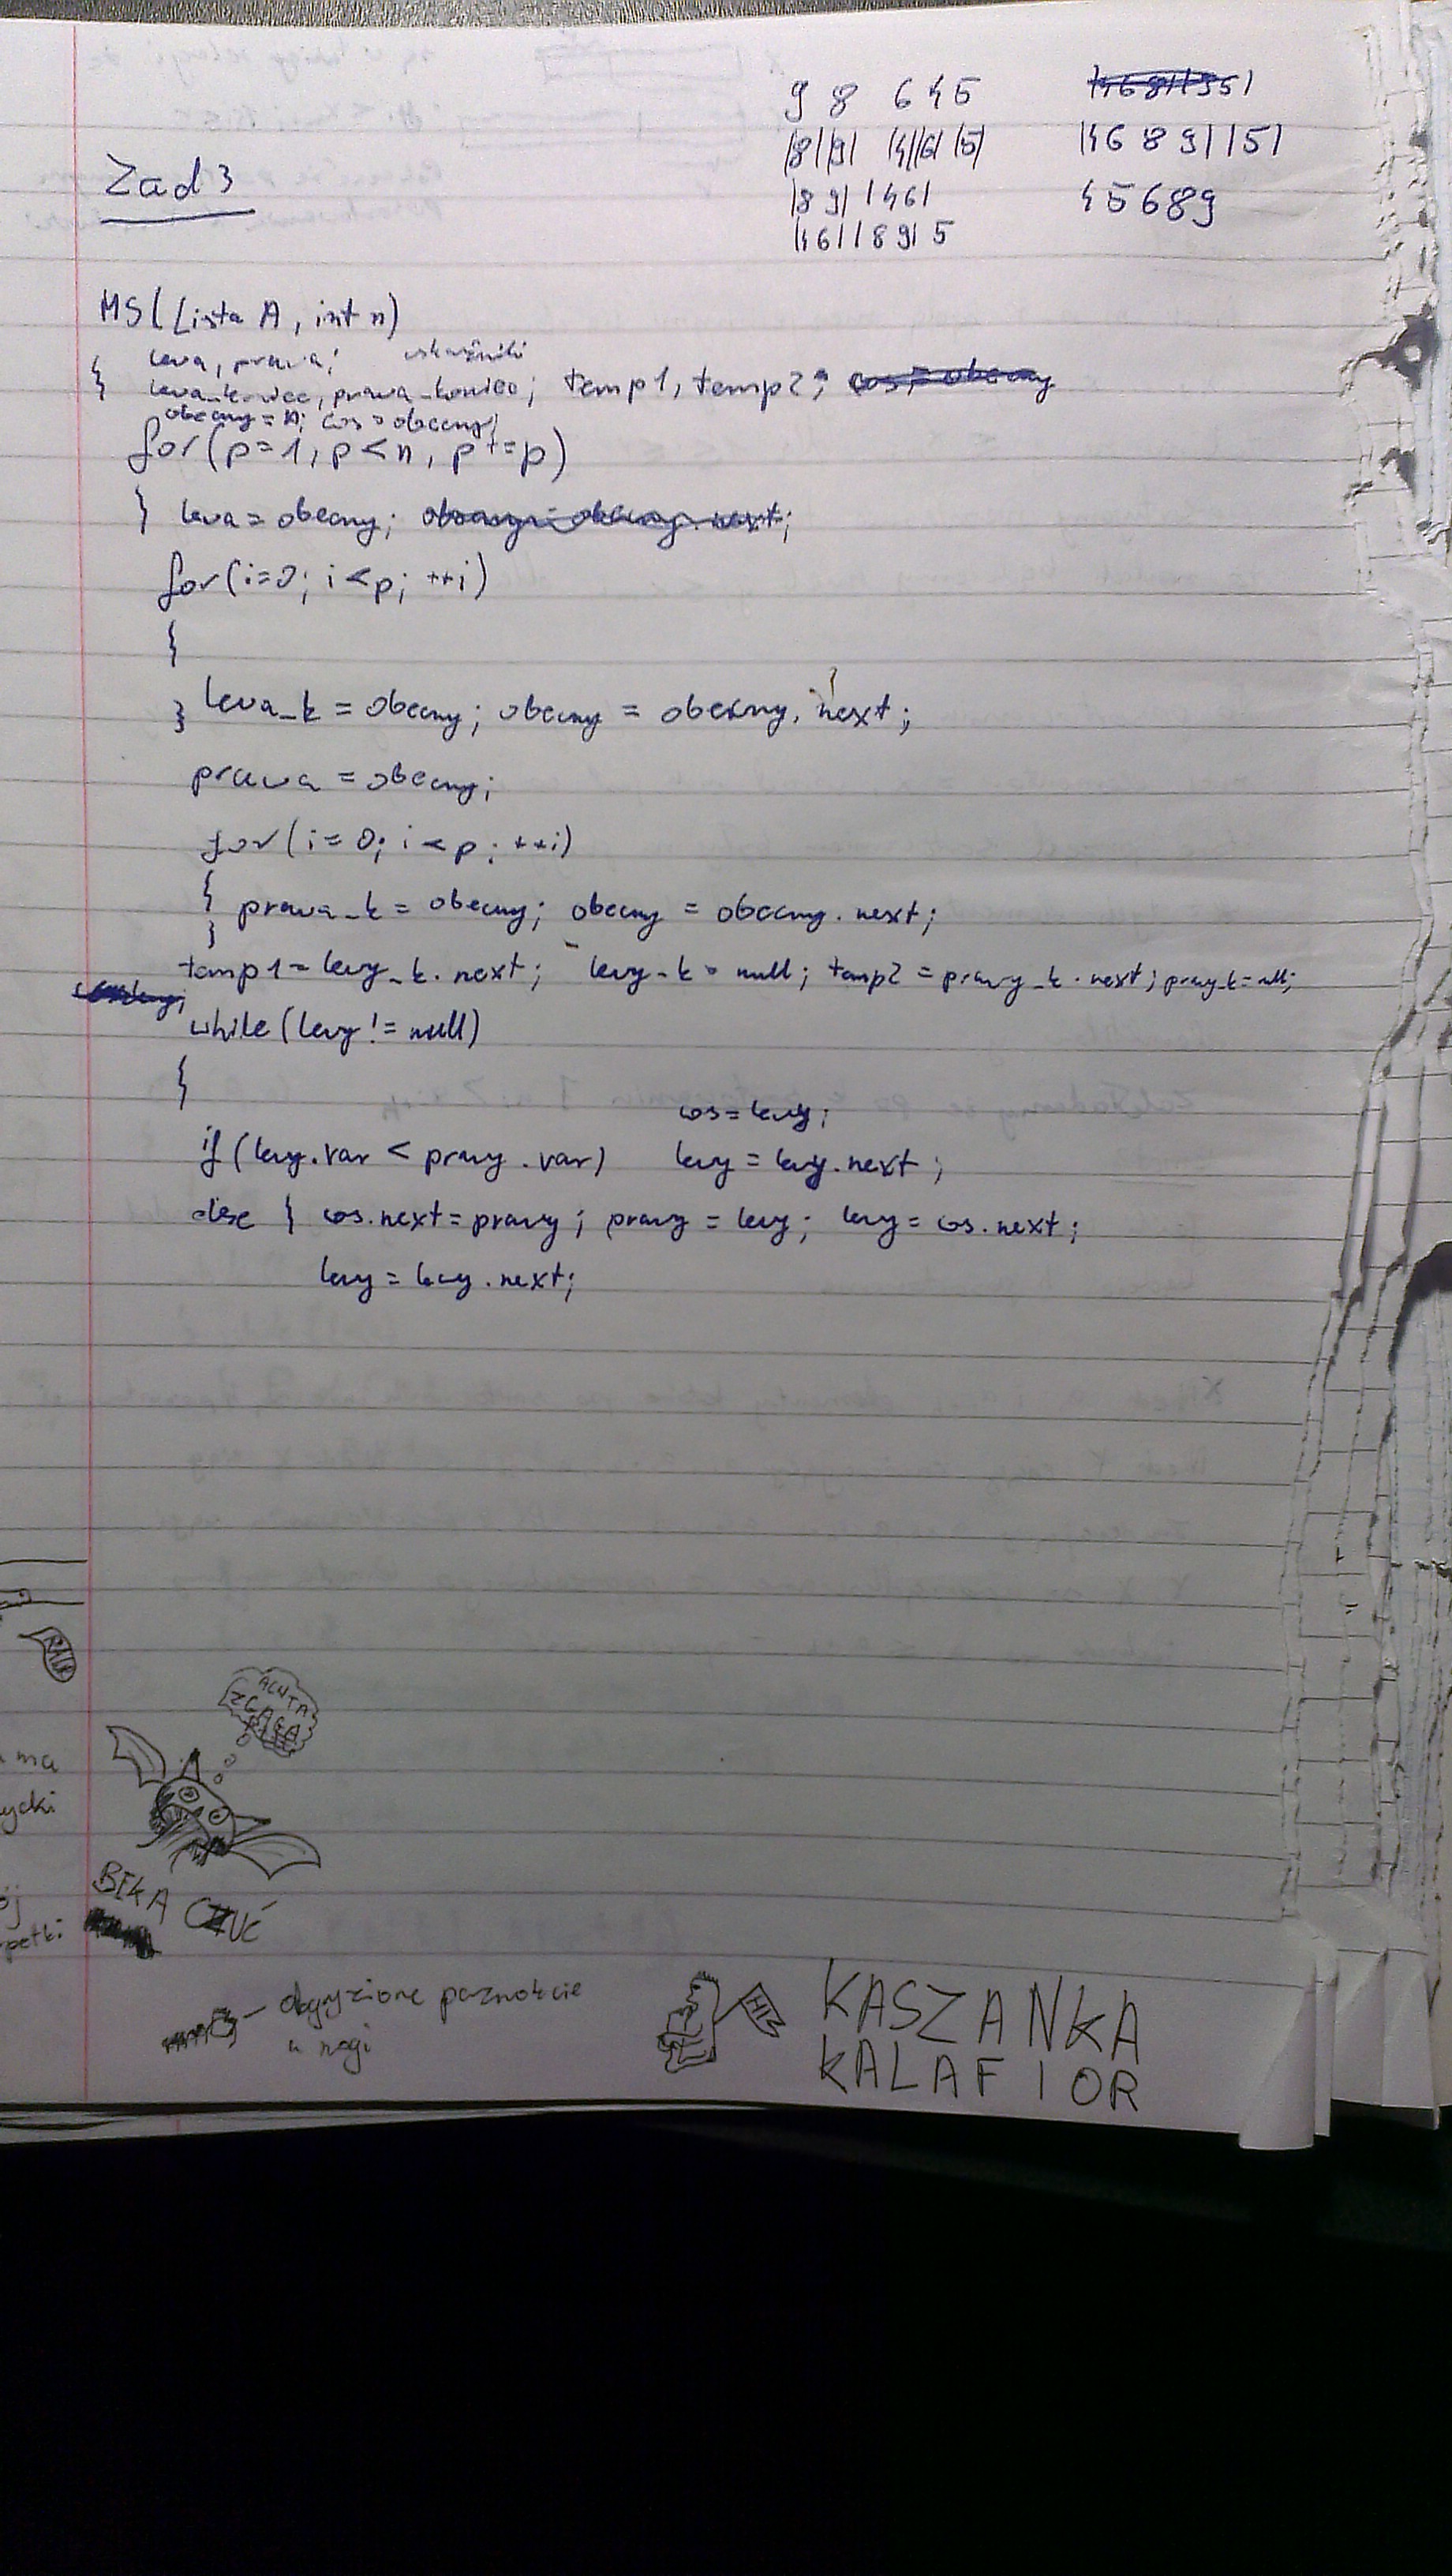 Zad 3
9 8 6 4 5
|8||9| |4||6| |5|
|8 9| |46|
|46||89| 5
|46 8 9||5|
45689
MS(Lista A, int n)
{ lewa, prawa; wskaźniki
lewa_koniec, prawa_koniec; temp1, temp2;
obecny = A; cos = obecny;
for(p=1, p<n, p+=p)
{ lewa = obecny;
for(i=0; i<p; ++i)
{
} lewa_k = obecny; obecny = obecny.next;
prawa = obecny;
for(i=0; i<p; ++i)
{ prawa_k = obecny; obecny = obecny.next;
}
temp1 = lewy_k.next; lewy_k = null; temp2 = prawy_k.next; prawy_k=null;
while(lewy != null)
{
cos = lewy;
if(lewy.var < prawy.var) lewy = lewy.next;
else { cos.next = prawy; prawy = lewy; lewy = cos.next;
lewy = lewy.next;
ma
ycki
petki
BEKA CZUĆ
obgryzione paznokcie
u nogi
KASZANKA
KALAFIOR